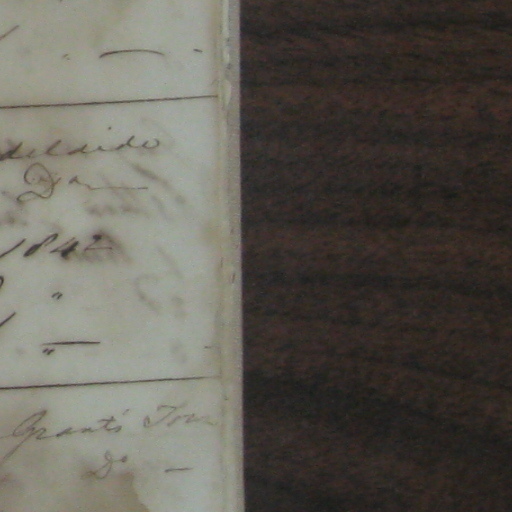 delaide
Do —
1842
"
" —
Grant's Tow
Do —